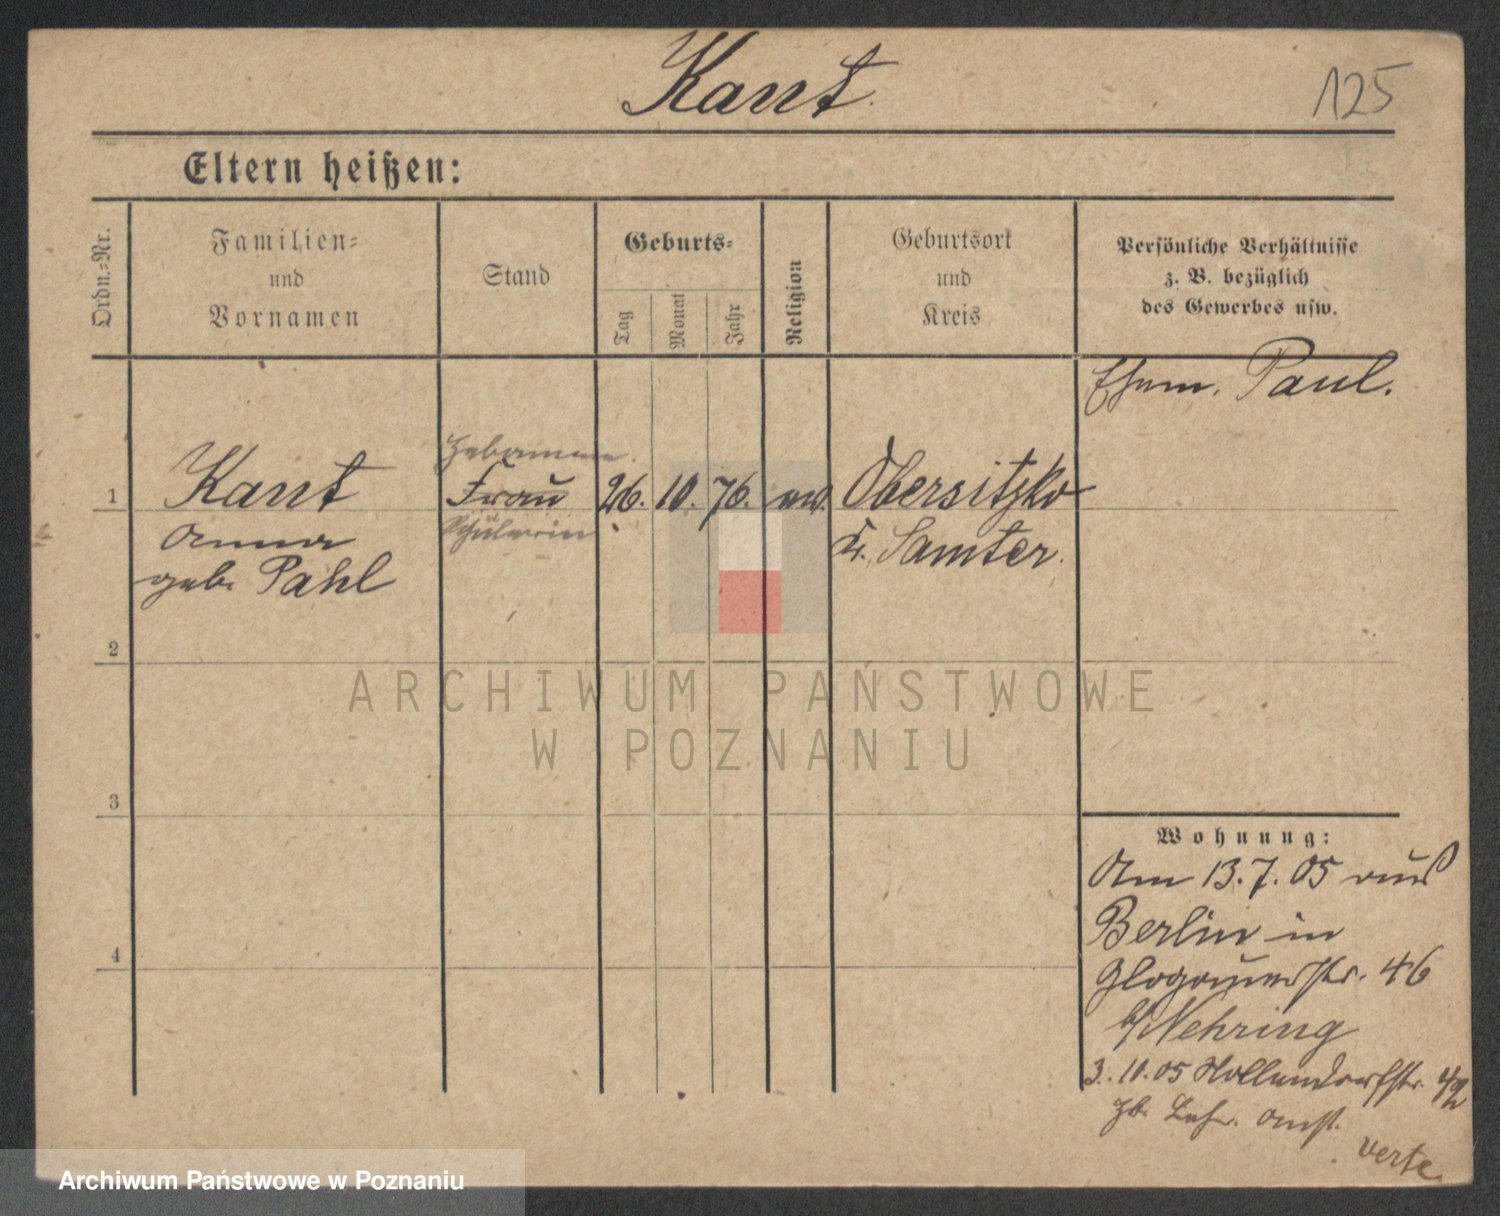 Kant.
125
Eltern heißen:
Ordn.=Nr.
Familien=
und
Vornamen
Stand
Geburts=
Tag
Monat
Jahr
Religion
Geburtsort
und
Kreis
Persönliche Verhältnisse
z. B. bezüglich
des Gewerbes usw.
Ehem. Paul.
Hebamme.
1 Kant Frau 26. 10. 76. ev. Obersitzko
Anna Schülerin Kr. Samter.
geb. Pahl
2
ARCHIWUM PAŃSTWOWE
W POZNANIU
3
Wohnung:
Am 13.7.05 aus
Berlin in
4
Glogauerstr. 46
b/Nehring
3.10.05
verte.
Archiwum Państwowe w Poznaniu